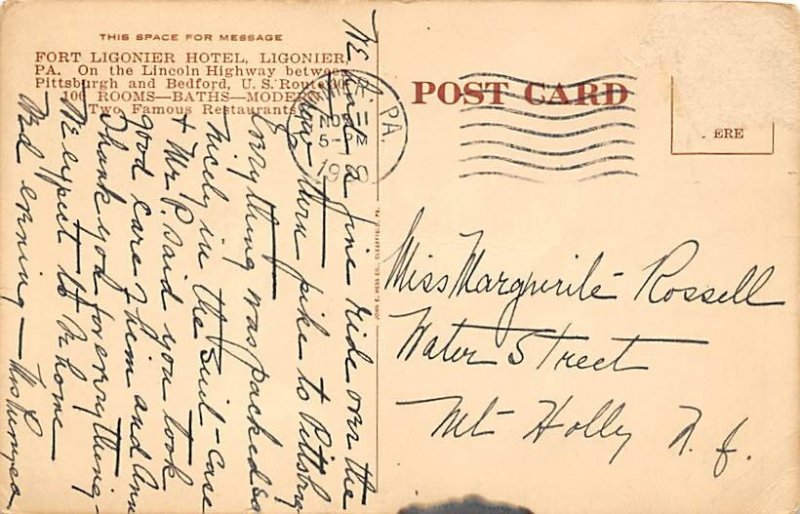 THIS SPACE FOR MESSAGE
FORT LIGONIER HOTEL, LIGONIER,
PA. On the Lincoln Highway between
Pittsburgh and Bedford, U. S. Route
100 ROOMS—BATHS—MODERN
Two Famous Restaurants
We had a fine ride over the
new turn pike to Pittsbrg
Everything was packed so
nicely in the suit-case
& Mr P. said you took
good care of him and Ann
Thank you for everything-
We expect to be home
Wed evening—Mrs
JOHN E. HESS CO., CLEARFIELD, PA.
POST CARD
ERE
PA.
NOV
5-P
19
Miss Marguerite Rossell
Water Street
Mt Holly N. J.